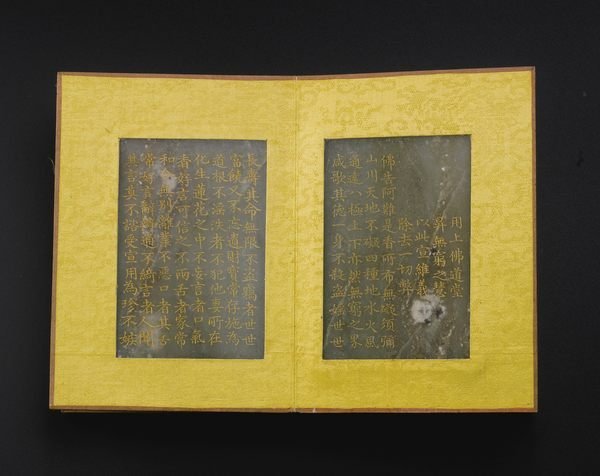 用上佛道堂
昇無窮之慧
以此宣維義
除去一切弊
佛告阿難是香所布無礙須彌
山川天地不礙四種地水火風
通達八極上下亦然無窮之界
咸歌其德一身不殺盜婬世世
長壽其命無限不盜竊者世世
富饒又不忘遺財寶常存施為
道根不婬泆者不犯他妻所在
化生蓮花之中不妄言者口氣
香言可信之不兩舌者家常
和合無別離業不惡口者其舌
常好言辭辯通不綺言者人聞
其言莫不諮受宣用為珍不嫉